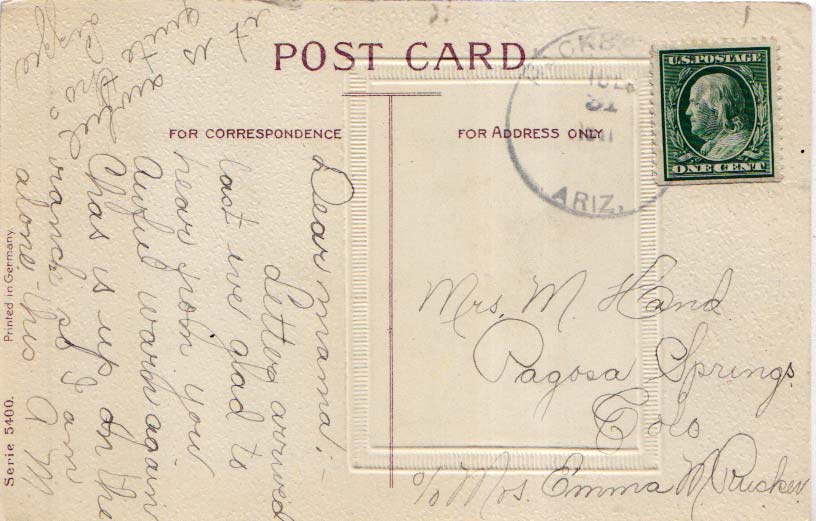 POST CARD
FOR CORRESPONDENCE
FOR ADDRESS ONLY
U.S. POSTAGE
ONE CENT
ARIZ.
Mrs. M. Hand
Pagosa Springs
Colo
c/o Mrs. Emma M Rucker
Dear mama:-
Letter arrived
last eve glad to
hear from you
Awful warm again
Chas is up on the
ranch so I am
alone this A M.
it is
quite
awful
Printed in Germany
Serie 5400.